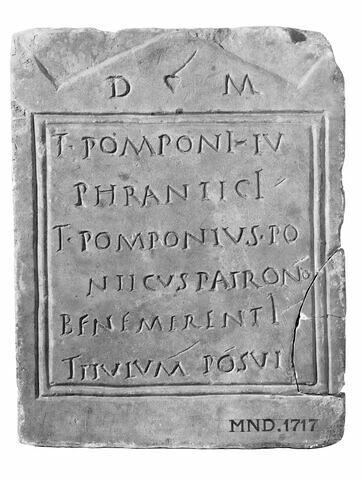 D M
T·POMPONI-IV
PHRANTICI
T·POMPONIVS·PO
NTICVSPATRONO
BENEMERENTI
TITVLVMPOSVI
MND.1717